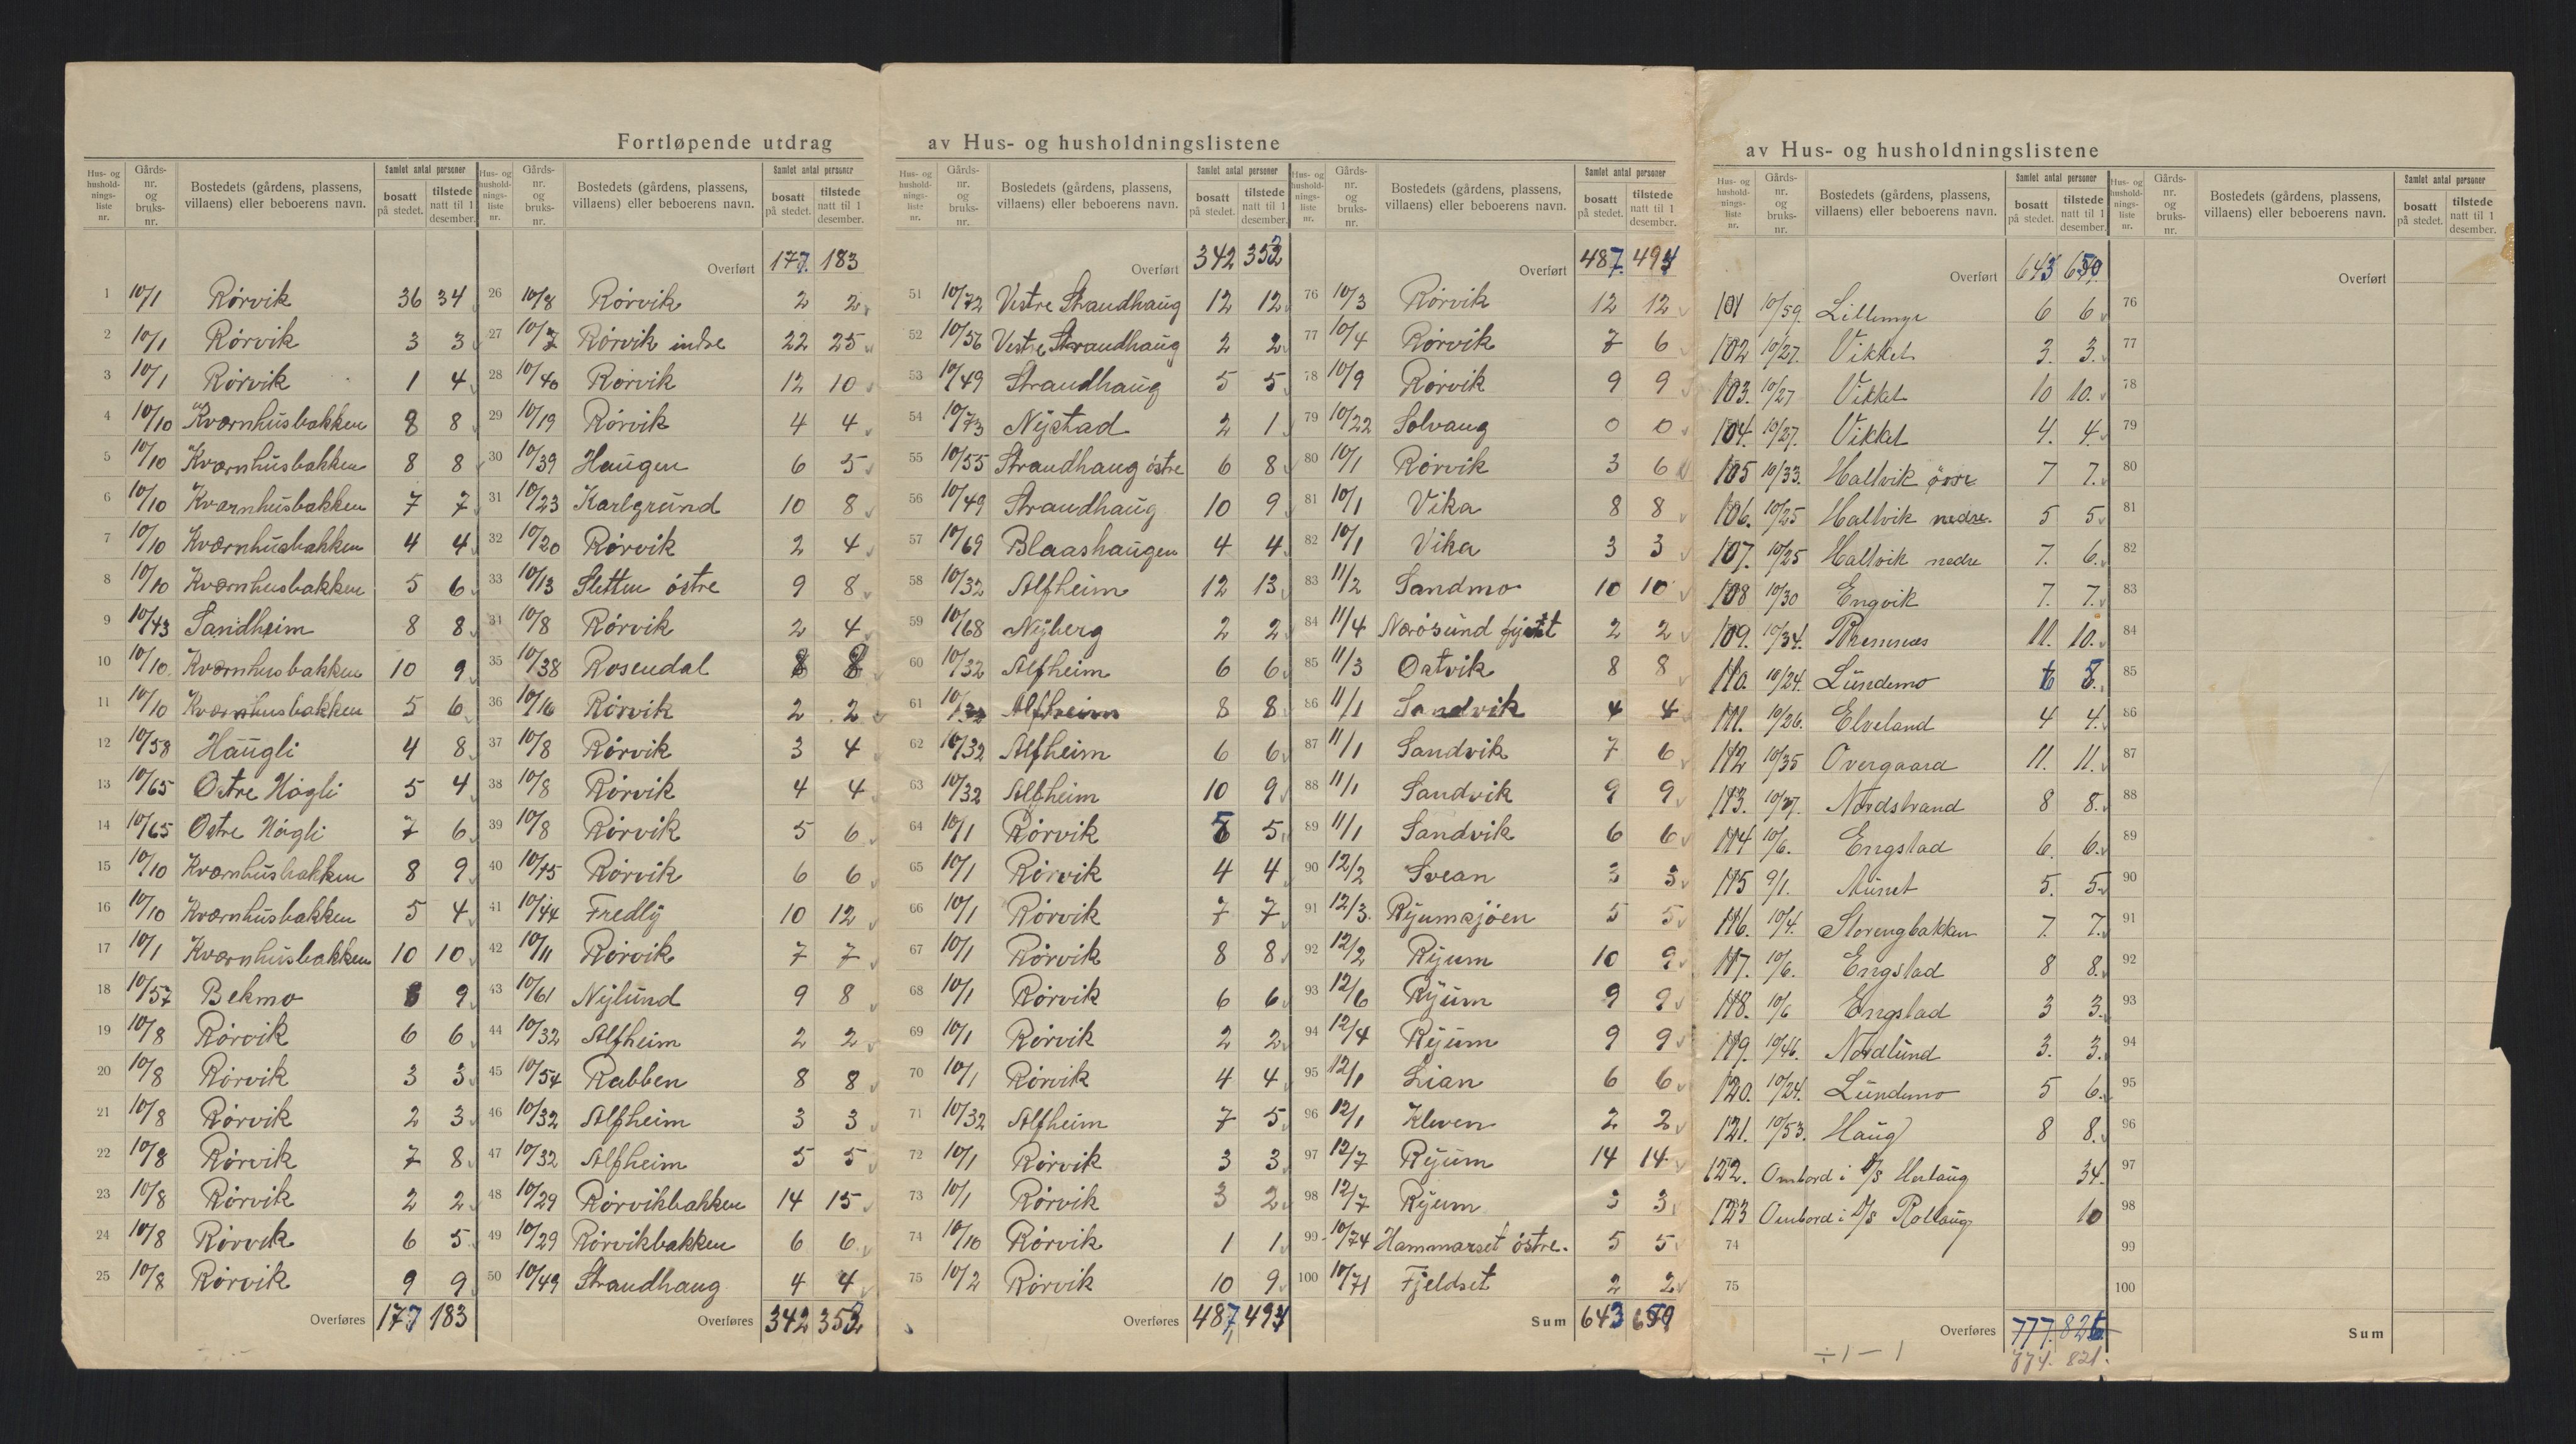 Fortløpende utdrag
av Hus- og husholdningslistene
av Hus- og husholdningslistene
Hus- og hushold-nings-liste nr. Gårds-nr. og bruks-nr. Bostedets (gårdens, plassens, villaens) eller beboerens navn. Samlet antal personer bosatt på stedet. tilstede natt til 1 desember.
1 10/1 Rørvik 36 34
2 10/1 Rørvik 3 3
3 10/1 Rørvik 1 4
4 10/10 Kværnhusbakken 8 8
5 10/10 Kværnhusbakken 8 8
6 10/10 Kvarnhusbakken 7 7
7 10/10 Kværnhusbakken 4 4
8 10/10 Kværnhusbakken 5 6
9 10/43 Sandheim 8 8
10 10/10. Kværnhusbakken 10 9
11 10/10 Kværnhusbakken 5 6
12 10/58 Haugli 4 8
13 10/65 Østre Høgli 5 4
14 10/65 Østre Høgli 7 6
15 10/10 Kværnhusbakken 8 9
16 10/10 Kværnhusbakken 5 4
17 10/1 Kværnhusbakken 10 10
18 10/57 Bekmo 8 9
19 10/8 Rørvik 6 6
20 10/8 Rørvik 3 3
21 10/8 Rørvik 2 3
22 10/8 Rørvik 7 8
23 10/8 Rørvik 2 2
24 10/8 Rørvik 6 5
25 10/8 Rørvik 9 9
Overføres 177 183
Hus- og hushold-nings-liste nr. Gårds-nr. og bruks-nr. Bostedets (gårdens, plassens, villaens) eller beboerens navn. Samlet antal personer bosatt på stedet. tilstede natt til 1 desember.
Overført 177. 183
26 10/8 Rørvik 2 2
27 10/7 Rørvik indre 22 25
28 10/40 Rørvik 12 10
29 10/19 Rørvik 4 4
30 10/39 Haugen 6 5
31 10/23 Karlgrund 10 8
32 10/20 Rørvik 2 4
33 10/13 Sletten østre 9 8
34 10/8 Rørvik 2 4
35 10/38 Rosendal 8 8
36 10/16 Rørvik 2 2
37 10/8 Rørvik 3 4
38 10/8 Rørvik 4 4
39 10/8 Rørvik 5 6
40 10/75 Rørvik 6 6
41 10/44 Fredly 10 12
42 10/11 Rørvik 7 7
43 10/61 Nylund 9 8
44 10/32 Alfheim 2 2
45 10/54 Rabben 8 8
46 10/32 Alfheim 3 3
47 10/32 Alfheim 5 5
48 10/29 Rørvikbakken 14 15
49 10/29 Rørvikbakken 6 6
50 10/49 Strandhaug 4 4
Overføres 342 352
Hus- og hushold-nings-liste nr. Gårds-nr. og bruks-nr. Bostedets (gårdens, plassens, villaens) eller beboerens navn. Samlet antal personer bosatt på stedet. tilstede natt til 1 desember.
Overført 342 352
51 10/72 Vestre Strandhaug 12 12
52 10/56 Vestre Strandhaug 2 2
53 10/49 Strandhaug 5 5
54 10/73 Nystad 2 1
55 10/55 Strandhaug østre 6 8
56 10/49 Strandhaug 10 9
57 10/69 Blaashaugen 4 4
58 10/32 Alfheim 12 13
59 10/68 Nyberg 2 2
60 10/32 Alfheim 6 6
61 10/32 Alfheim 8 8
62 10/32 Alfheim 6 6
63 10/32 Alfheim 10 9
64 10/1 Rørvik 5 5
65 10/1 Rørvik 4 4
66 10/1 Rørvik 7 7
67 10/1 Rørvik 8 8
68 10/1 Rørvik 6 6
69 10/1 Rørvik 2 2
70 10/1 Rørvik 4 4
71 10/32 Alfheim 7 5
72 10/1 Rørvik 3 3
73 10/1 Rørvik 3 2
74 10/10 Rørvik 1 1
75 10/2 Rørvik 10 9
Overføres 487
Hus- og hushold-nings-liste nr. Gårds-nr. og bruks-nr. Bostedets (gårdens, plassens, villaens) eller beboerens navn. Samlet antal personer bosatt på stedet. tilstede natt til 1 desember.
Overført 487.
76 10/3 Rørvik 12 12
77 10/4 Rørvik 7 6
78 10/9 Rørvik 9 9
79 10/22 Solvang 0 0
80 10/1 Rørvik 3 6
81 10/1 Vika 8 8
82 10/1 Vika 3 3
83 11/2 Sandmo 10 10
84 11/4 Nærøsund 2 2
85 11/3 Ostvik 8 8
86 11/1 Sandvik 4 4
87 11/1 Sandvik 7 6
88 11/1 Sandvik 9 9
89 11/1 Sandvik 6 6
90 12/2 Svean 3 3
91 12/3. Ryumsjøen 5 5
92 12/2 Ryum 10 9
93 12/6 Ryum 9 9
94 12/4 Ryum 9 9
95 12/1 Lian 6 6
96 12/1 Kleven 2 2
97 12/7 Ryum 14 14
98 12/7 Ryum 3 3
99 10/74 Hammarset østre. 5 5
100 10/71 Fjeldset 2 2
Sum 643
Hus- og hushold-nings-liste nr. Gårds-nr. og bruks-nr. Bostedets (gårdens, plassens, villaens) eller beboerens navn. Samlet antal personer bosatt på stedet. tilstede natt til 1 desember.
Overført 643
101 10/59. Lillemyr 6 6
102 10/27. Vikket 3. 3.
103. 10/27 Vikket 10 10.
104. 10/27. Vikket 4. 4.
105 10/33. Hallvik øvre 7 7.
106. 10/25 Hallvik nedre. 5 5
107. 10/25 Hallvik nedre 7. 6.
108 10/30 Engvik 7. 7.
109. 10/34. 11. 10.
110. 10/24. Lundemo 6 8.
111. 10/26. Elveland 4 4.
112 10/35 Overgaard 11. 11.
113. Nordstrand 8 8.
114 10/6. Engstad 6. 6.
115 9/1. 5. 5
116. 10/4. Storengbakken 7. 7.
117. 10/6. Engstad 8 8.
118. 10/6 Engstad 3 3.
119. 10/46. Nordlund 3. 3.
120. 10/24. Lundemo 5 6.
121. 10/53. Haug 8 8.
122. Ombord i D/S Herlaug 34.
123 Ombord i D/S Rollaug 10
74
75
Overføres 777. 826
÷ 1 — 1 774. 821.
Hus- og hushold-nings-liste nr. Gårds-nr. og bruks-nr. Bostedets (gårdens, plassens, villaens) eller beboerens navn. Samlet antal personer bosatt på stedet. tilstede natt til 1 desember.
Overført
76
77
78
79
80
81
82
83
84
85
86
87
88
89
90
91
92
93
94
95
96
97
98
99
100
Sum